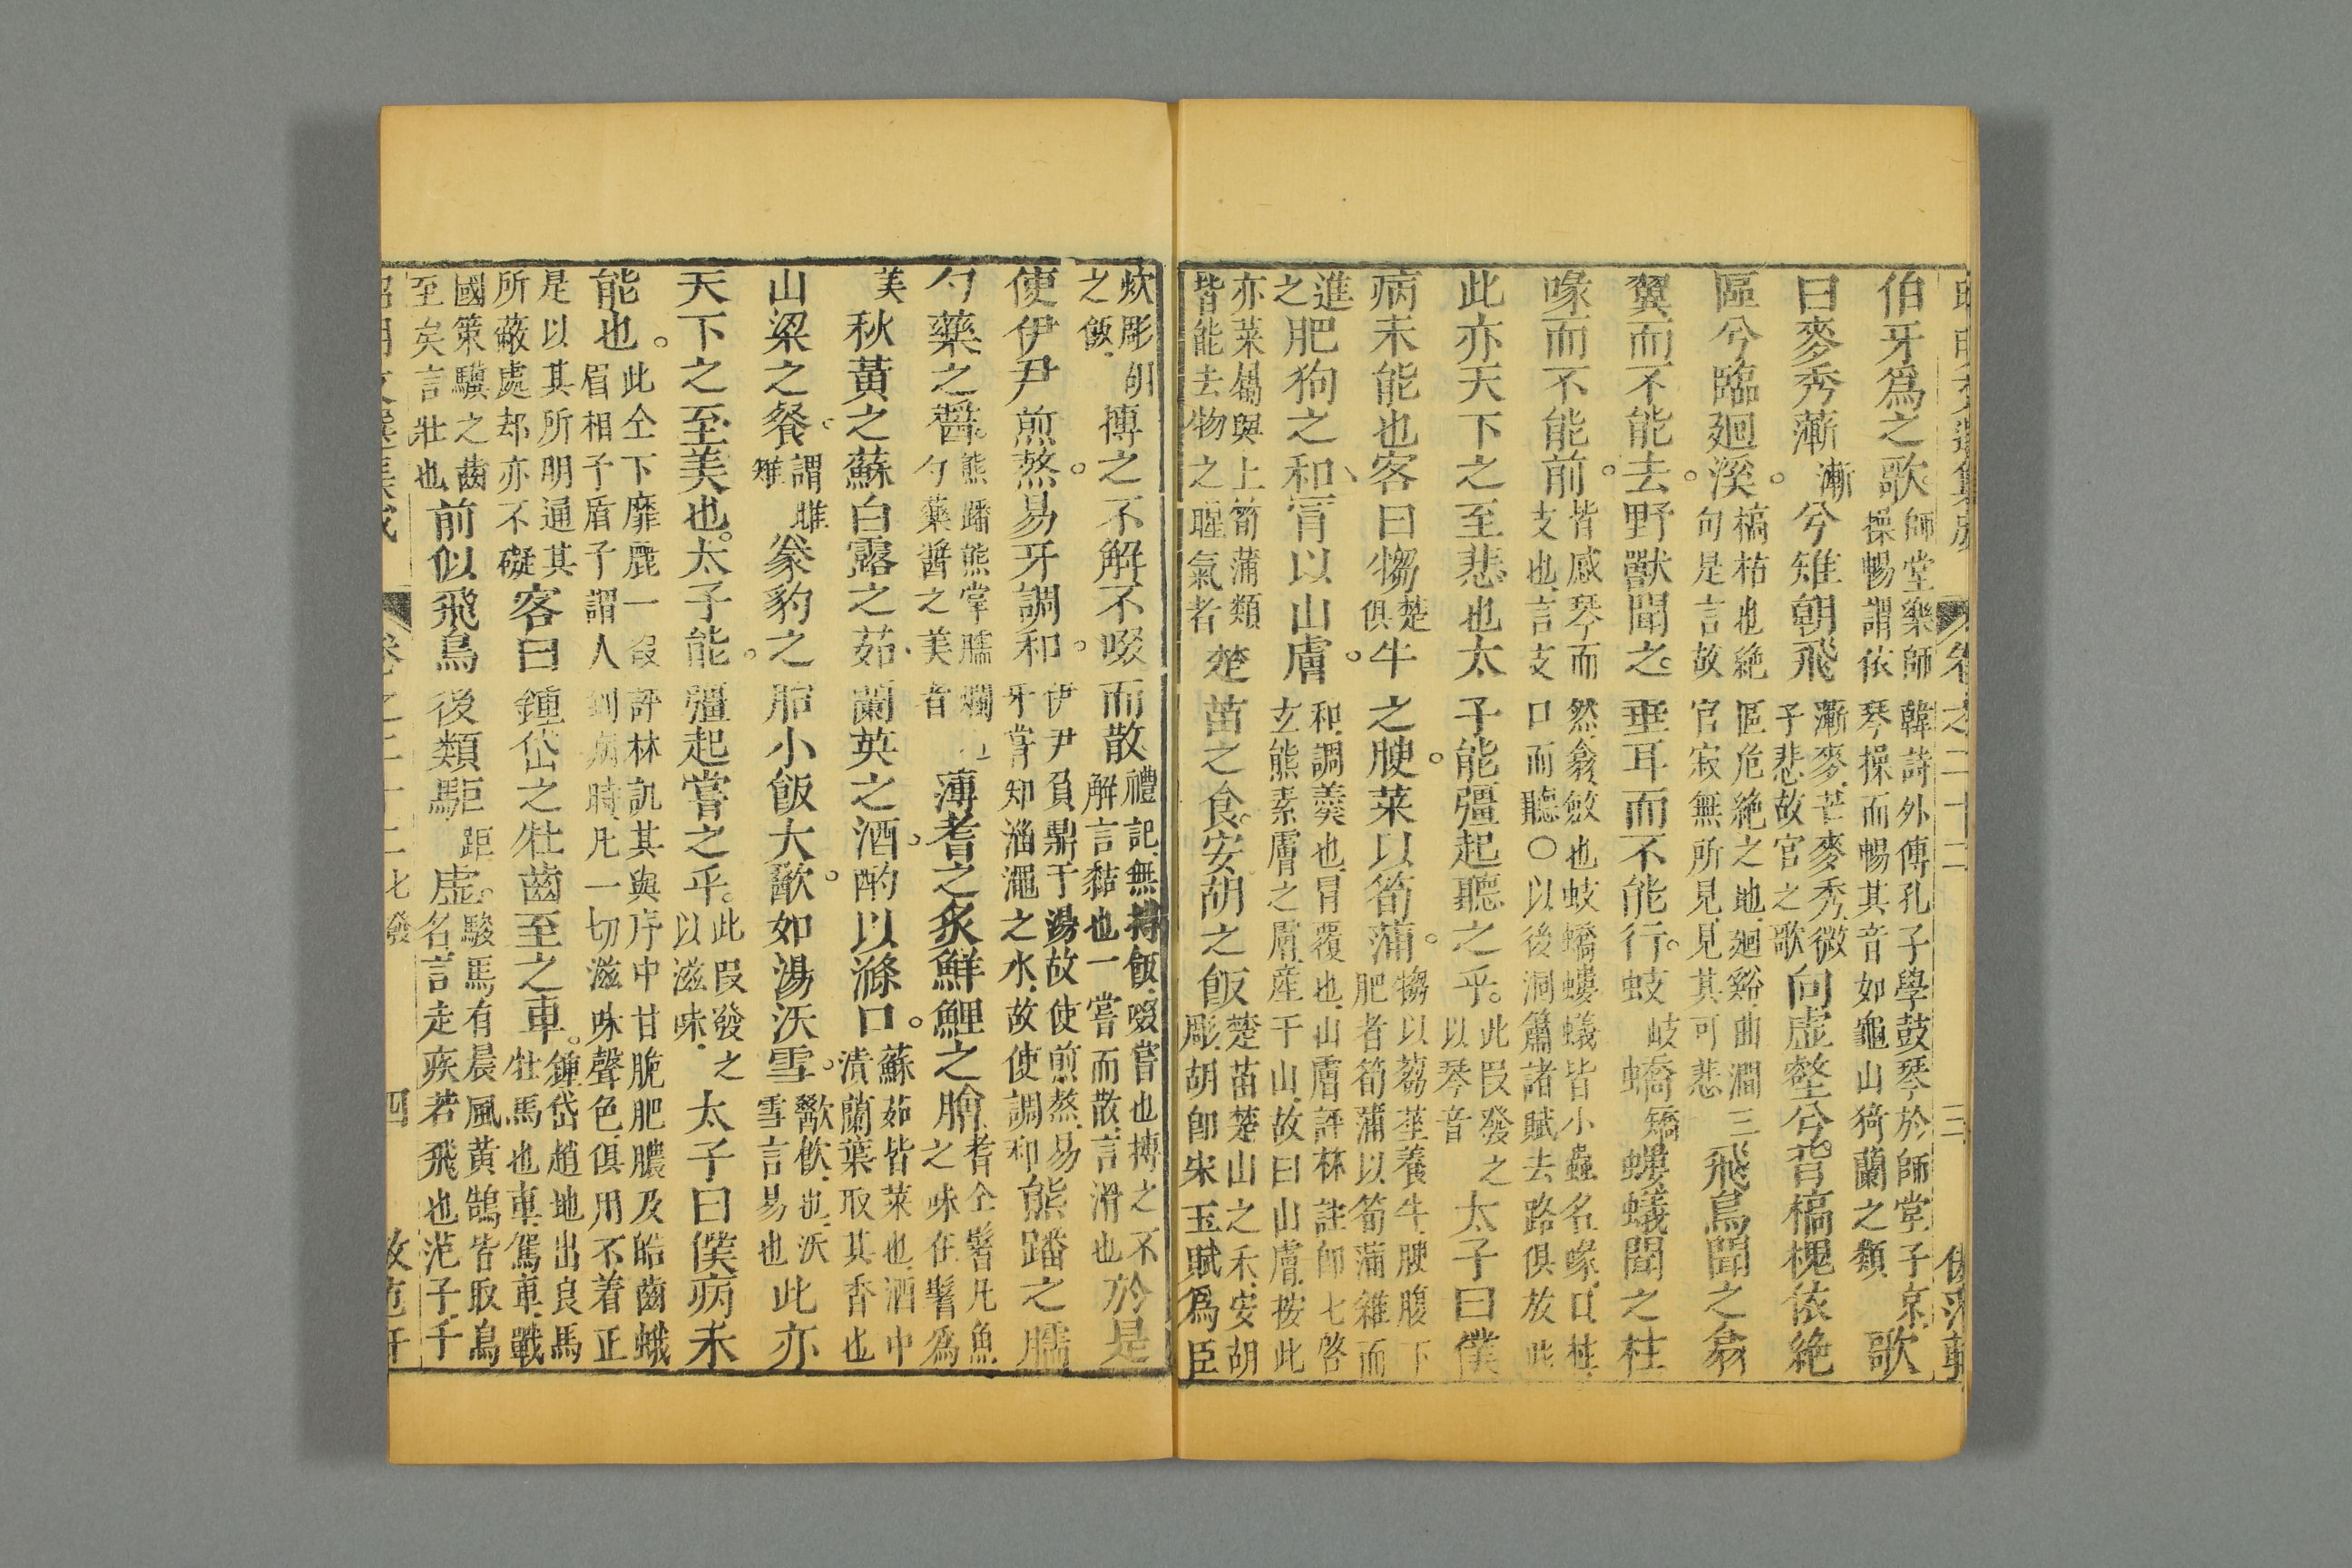 伯牙爲之歌師堂樂師韓詩外傳孔子學鼓琴於師堂子京操暢謂依琴操而暢其音如龜山猗蘭之類歌
曰麥秀漸漸兮雉朝飛漸麥芒麥秀微子悲故宮之歌向虛壑兮背槁槐依絶
區兮臨迴溪槁枯也絶區危絶之地迴谿曲澗三句是言故官寂無所見見其可悲飛鳥聞之翕
翼而不能去野獸聞之垂耳而不能行蚑岐蟜矯螻蟻聞之柱
喙而不能前皆感琴而然翕斂也蚑蟜螻蟻皆小蟲名喙口柱支也言支口而聽○以後洞簫諸賦去路俱放此
此亦天下之至悲也太子能彊起聽之乎此叚發之以琴音太子曰僕
病未能也客曰犓牛之腴菜以筍蒲犓以芻莝養牛腴腹下肥者筍蒲以筍蒲雜而
進之肥狗之和冐以山膚和調羮也冒覆也山膚評林註卽七啓玄熊素膚之膚産于山故曰山膚按此
亦菜屬與上筍蒲類皆能去物之腥氣者楚苗之食安胡之飯楚苗楚山之禾安胡彫胡卽宋玉賦爲臣
炊彫胡之飯摶之不解不啜而散禮記無摶飯啜嘗也摶之不解言黏也一嘗而散言滑也於是
使伊尹煎熬易牙調和伊尹負鼎于湯故使煎熬易牙嘗知淄澠之水故使調和熊蹯之臑
勺藥之醬熊蹯熊掌臑爛勺藥醬之美者薄耆之炙鮮鯉之膾耆仝鬐凡魚之味在鬐爲
美秋黃之蘇白露之茹蘭英之酒酌以滌口蘇茹皆菜也酒中漬蘭葉取其香也
山梁之餐謂雌雉豢豹之胎小飯大歠如湯沃雪歠飲也沃雪言易也此亦
天下之至美也太子能彊起嘗之乎此叚發之以滋味太子曰僕病未
能也此仝下靡麗一叚評林訊其與序中甘脆肥膿及皓齒蛾眉相子盾子謂人到病時凡一切滋味聲色俱用不着正
是以其所明通其所蔽處却亦不礙客曰鍾岱之牡齒至之車鍾岱趙地出良馬牡馬也車駕車戰
國策驥之齒至矣言壯也前似飛鳥後類駏距虛駿馬有晨風黃鵠皆取鳥名言走疾若飛也范子千
卷之二十二七發 四